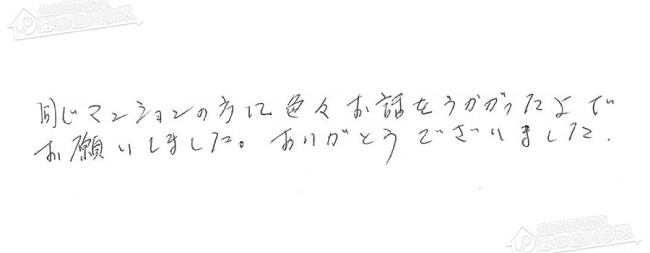 同じマンションの方に色々お話をうかがったよで
お願いしました。ありがとうございました.